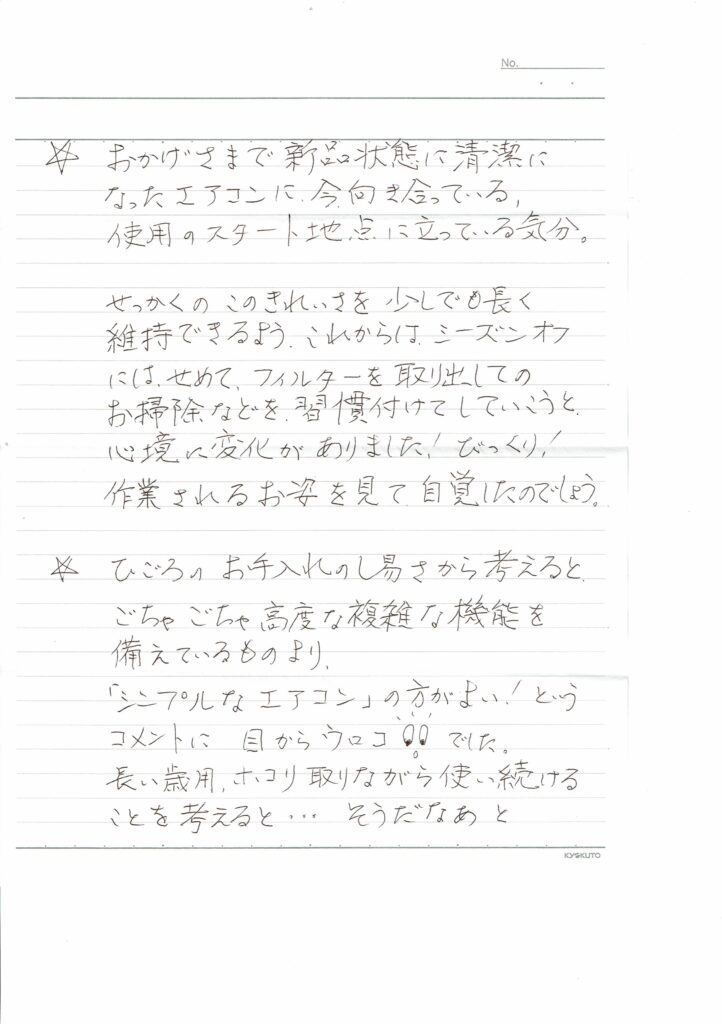 No.
☆ おかげさまで新品状態に清潔に
なったエアコンに、今、向き合っている、
使用のスタート地点に立っている気分。
せっかくの このきれいさを 少しでも長く
維持できるよう、これからは、シーズンオフ
には、せめて、フィルターを 取り出しての
お掃除などを、習慣付けてしていこうと、
心境に変化が ありました! びっくり!
作業されるお姿を見て、自覚したのでしょう。
☆ ひごろの お手入れのし易さから考えると、
ごちゃごちゃ高度な複雑な機能を
備えているものより、
「シンプルなエアコン」の方がよい! という
コメントに 目からウロコ でした。
長い歳用、ホコリ取りながら使い続ける
ことを考えると… そうだなあ と
KYOKUTO